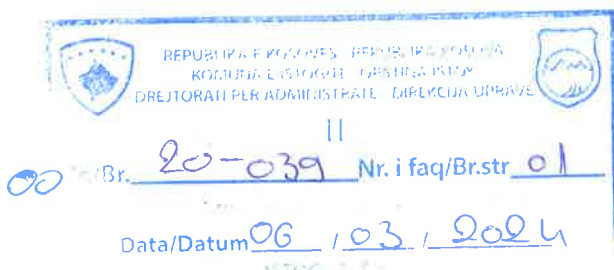 REPUBLIKA E KOSOVËS - REPUBLIKA KOSOVA
KOMUNA E ISTOGUT - OPŠTINA ISTOK
DREJTORATI PËR ADMINISTRATË - DIREKCIJA UPRAVE
II
Br. 20-039 Nr. i faq/Br.str 01
Data/Datum 06 / 03 / 2024